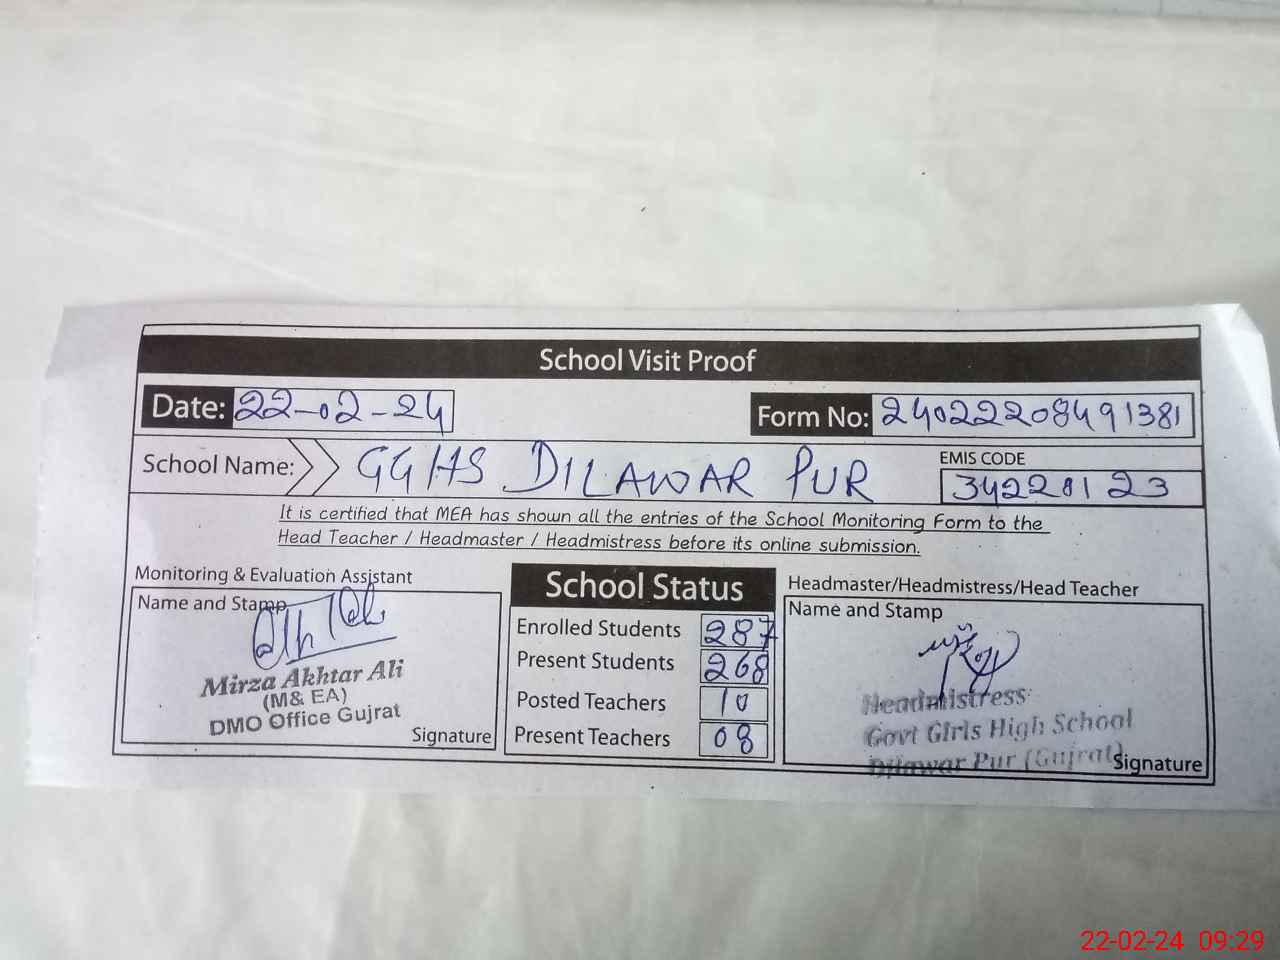 School Visit Proof
Date: 22-02-24
Form No: 24022208491381
School Name: GGHS DILAWAR PUR
EMIS CODE
34220123
It is certified that MEA has shown all the entries of the School Monitoring Form to the
Head Teacher / Headmaster / Headmistress before its online submission.
Monitoring & Evaluation Assistant
Name and Stamp
Mirza Akhtar Ali
(M& EA)
DMO Office Gujrat
Signature
School Status
Enrolled Students 287
Present Students 268
Posted Teachers 10
Present Teachers 08
Headmaster/Headmistress/Head Teacher
Name and Stamp
Headmistress
Govt Girls High School
Dilawar Pur (Gujrat)
Signature
22-02-24 09:29